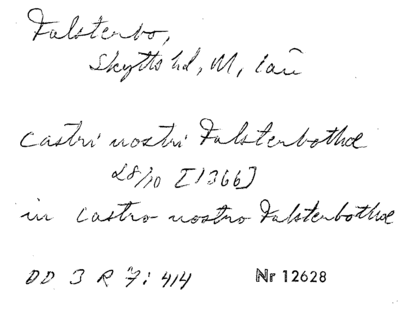 Falsterbo,
Skytts hd, M, län
castri nostri Falsterbothæ
28/10 [1366]
in castro nostro Falsterbothæ
DD 3 R 7: 414 Nr 12628